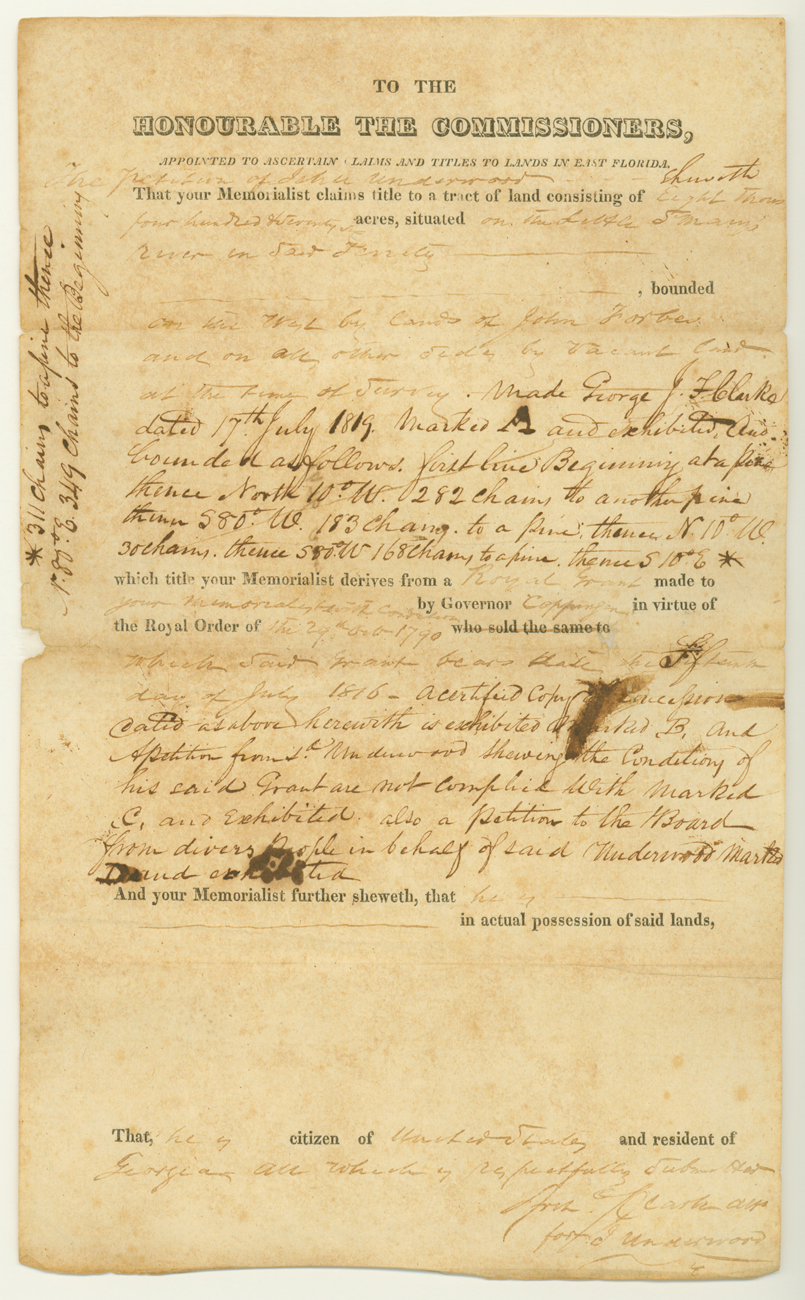 TO THE
HONOURABLE THE COMMISSIONERS,
APPOINTED TO ASCERTAIN CLAIMS AND TITLES TO LANDS IN EAST FLORIDA.
The petition of Underwood sheweth
That your Memorialist claims title to a tract of land consisting of Eight thous
four hundred & twenty acres, situated on the Little St Marys
River in said
, bounded
on the West by lands of John Forbes
and on all other sides by Vacant land
at the time of Survey. Made George J. F. Clarke
dated 17th July 1819. Marked A and exhibited, and
bounded as follows. first line Beginning at a pine
thence North 10° W. 282 chains to another pine
thence S 80° W. 183 Chains. to a pine, thence N. 10° W.
30 chains. thence S 80° W 168 Chains to a pine. thence S 10° E *
* 311 Chains to a pine thence
N. 80° E. 349 Chains to the Beginning
which title your Memorialist derives from a Royal Grant made to
your Memorialist by Governor Coppinger in virtue of
the Royal Order of the 29th Oct 1790 who sold the same to
which said grant bears date the fifteenth
day of July 1816 - A certified Copy of concession
dated as above herewith is exhibited Marked B, and
A petition from sd. Underwood shewing the Conditions of
his said Grant are not complied With Marked
C, and Exhibited. also a petition to the Board
from divers people in behalf of said Underwood Marked
D and exhibited
And your Memorialist further sheweth, that he is
in actual possession of said lands,
That, he is citizen of United States and resident of
Georgia all which is respectfully Submitted
Clark atto
for J Underwood